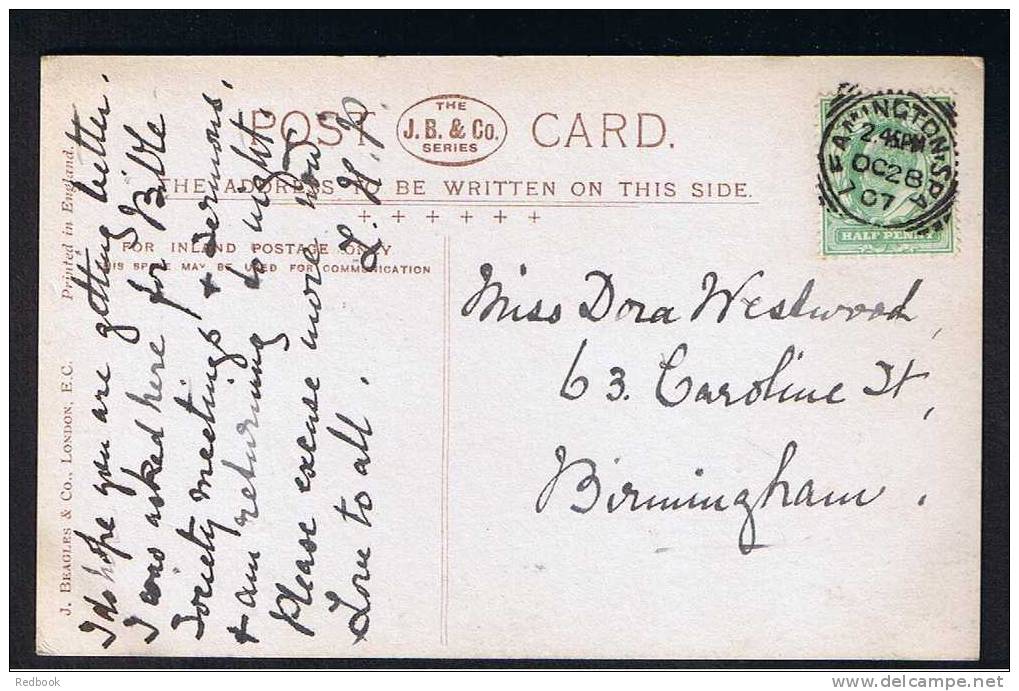 POST CARD.
THE
J. B. & Co.
SERIES
THE ADDRESS TO BE WRITTEN ON THIS SIDE.
FOR INLAND POSTAGE ONLY
THIS SPACE MAY BE USED FOR COMMUNICATION
J. BEAGLES & CO., LONDON, E.C.
Printed in England.
I do hope you are getting better.
I was asked here for Bible
Society meetings & Sermons,
& am returning to night
Please excuse more now
Love to all.
LEAMINGTON-SPA
2.45PM
OC 28
07
HALF PENNY
Miss Dora Westwood,
63. Caroline St,
Birmingham.
Redbook
www.delcampe.net